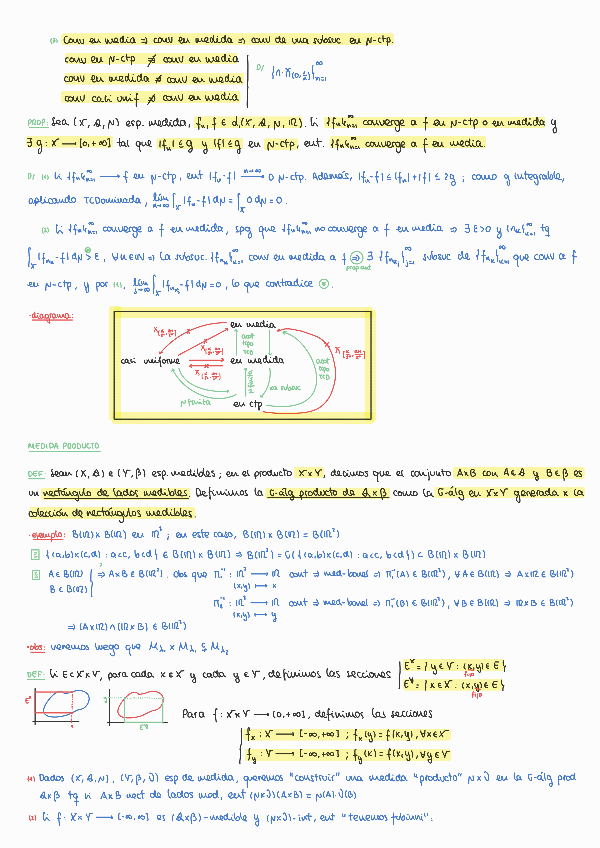 (3) Conv en media ⇒ conv en medida ⇒ conv de una subsuc en μ-ctp.
conv en μ-ctp ⇏ conv en media
conv en medida ⇏ conv en media
conv casi unif ⇏ conv en media
D/ {n·χ(0,1/n)}∞n=1
PROP: Sea (X, A, μ) esp. medida, fn, f ∈ L(X, A, μ, ℝ). Si {fn}∞n=1 converge a f en μ-ctp o en medida y
∃ g: X → [0,+∞] tal que |fn| ≤ g y |f| ≤ g en μ-ctp, ent. {fn}∞n=1 converge a f en media.
D/ (1) Si {fn}∞n=1 → f en μ-ctp, ent |fn-f| → 0 μ-ctp. Además, |fn-f| ≤ |fn|+|f| ≤ 2g ; como g integrable,
aplicando TCDominada, lim n→∞ ∫X |fn-f| dμ = ∫X 0 dμ = 0.
(2) Si {fn}∞n=1 converge a f en medida, spg que {fn}∞n=1 no converge a f en media ⇒ ∃ ε>0 y {nk}∞k=1 tq
∫X |fnk-f| dμ > ε, ∀k∈ℕ ⇒ La subsuc. {fnk}∞k=1 conv en medida a f ⇒ ∃ {fnkj}∞j=1 subsuc de {fnk}∞k=1 que conv a f
prop ant
en μ-ctp, y por (1), lim j→∞ ∫X |fnkj-f| dμ = 0, lo que contradice ⊛.
·diagrama:
en media
casi uniforme
en medida
en ctp
acot
tipo
TCD
μ finita
μ finita
xa subsuc
acot
tipo
TCD
MEDIDA PRODUCTO
DEF: Sean (X, A) e (Y, B) esp. medibles ; en el producto X×Y, decimos que el conjunto A×B con A∈A y B∈B es
un rectángulo de lados medibles. Definimos la σ-álg producto de A×B como la σ-álg en X×Y generada x la
colección de rectángulos medibles.
·ejemplo: B(ℝ)×B(ℝ) en ℝ² ; en este caso, B(ℝ)×B(ℝ) = B(ℝ²)
⊇ {(a,b)×(c,d) : a<c, b<d} ∈ B(ℝ)×B(ℝ) ⇒ B(ℝ²) = σ({(a,b)×(c,d) : a<c, b<d}) ⊂ B(ℝ)×B(ℝ)
A∈B(ℝ)
B∈B(ℝ)
⇒ A×B ∈ B(ℝ²). Obs que Π1 : ℝ² → ℝ cont ⇒ med-borel ⇒ Π1⁻¹(A) ∈ B(ℝ²), ∀A∈B(ℝ) ⇒ A×ℝ ∈ B(ℝ²)
(x,y) ↦ x
Π2 : ℝ² → ℝ cont ⇒ med-borel ⇒ Π2⁻¹(B) ∈ B(ℝ²), ∀B∈B(ℝ) ⇒ ℝ×B ∈ B(ℝ²)
(x,y) ↦ y
⇒ (A×ℝ)∩(ℝ×B) ∈ B(ℝ²)
·obs: veremos luego que Mλ1 × Mλ1 ⊊ Mλ2
DEF: Si E⊂X×Y, para cada x∈X y cada y∈Y, definimos las secciones
Ex = {y∈Y : (x,y)∈E}
fijo
Ey = {x∈X : (x,y)∈E}
fijo
Para f : X×Y → [0,+∞], definimos las secciones
fx : Y → [-∞,+∞] ; fx(y) = f(x,y), ∀x∈X
fy : X → [-∞,+∞] ; fy(x) = f(x,y), ∀y∈Y
(1) Dados (X, A, μ), (Y, B, ν) esp de medida, queremos "construir" una medida "producto" μ×ν en la σ-álg prod
A×B tq si A×B rect de lados med, ent (μ×ν)(A×B) = μ(A)·ν(B)
(2) Si f : X×Y → [-∞,+∞] es (A×B)-medible y (μ×ν)-int, ent "tenemos fubinni":